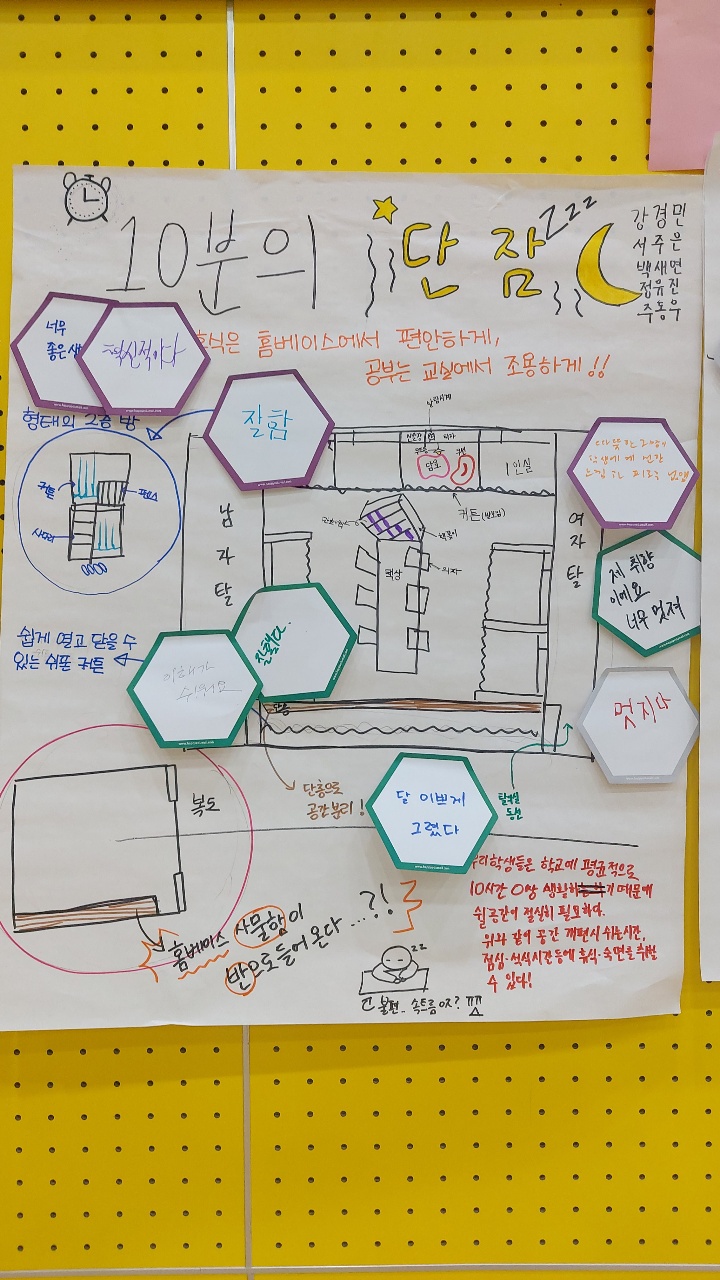 10분의 단 잠 zzz
강경민
서주은
백새연
정유진
주동우
너우
좋은 생
혁신적이다
휴식은 홈베이스에서 편안하게,
공부는 교실에서 조용하게!!
잘함
형태의 2층 방
커튼
사다리
남자탈
여자탈
1인실
담요
쿠션
커튼
책꽂이
의자
책상
따뜻한 그림
제 취향
이에요
너무 멋져
멋지다
잘했다.
이해가
쉬워요
쉽게 열고 닫을 수
있는 쉬폰 커튼
단층으로
공간분리!
달 이쁘게
그렸다
탈의실
동선
복도
홈베이스 사물함이
반으로 들어온다...?!
우리학생들은 학교에 평균적으로
10시간 이상 생활하기 때문에
쉴 공간이 절실히 필요하다.
위와 같이 공간 개편시 쉬는시간,
점심·석식시간 등에 휴식·숙면을 취할
수 있다!
zz
불편..